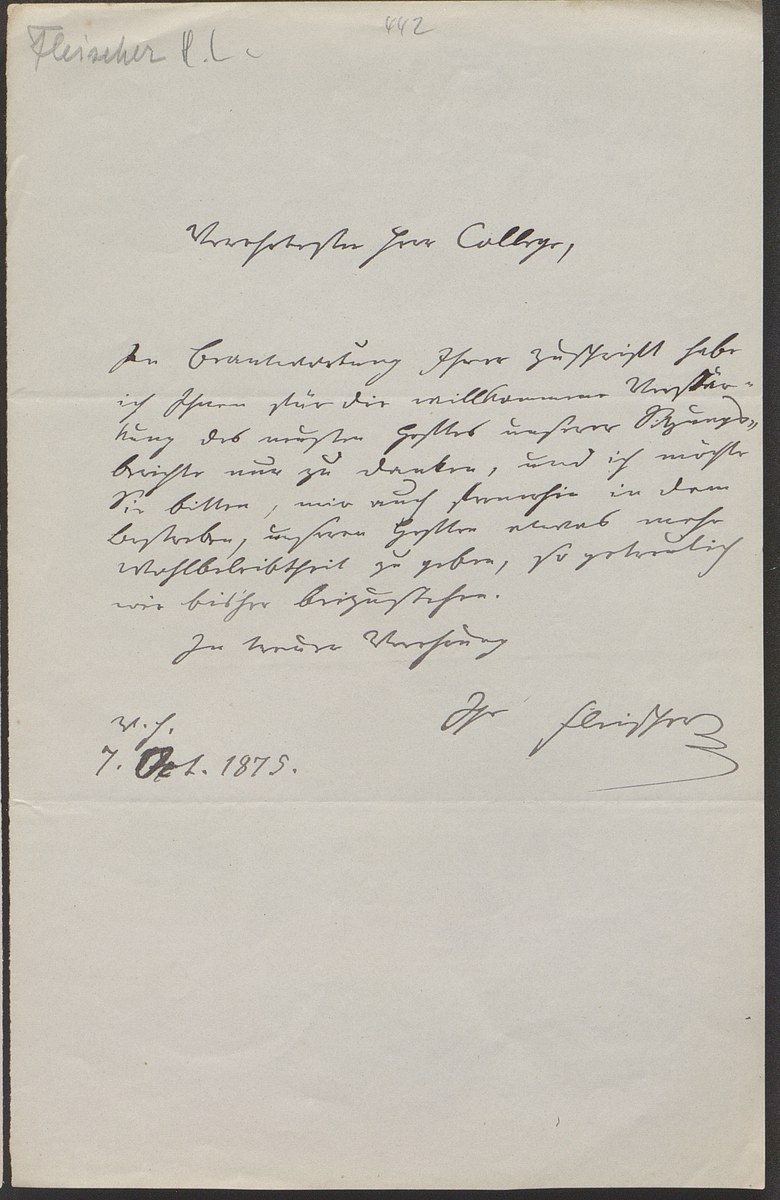 Fleischer H. L.
442
Verehrtester Herr College,
In Beantwortung Ihrer Zuschrift habe
ich Ihnen für die willkommene Verstär-
kung des neusten Heftes unserer Sitzungs-
berichte nur zu danken, und ich möchte
Sie bitten, mir auch fernerhin in dem
Bestreben, unseren Heften etwas mehr
Wohlbeleibtheit zu geben, so getreulich
wie bisher beizustehen.
In treuer Verehrung
Ihr Fleischer
v. H.
7. Oct. 1875.